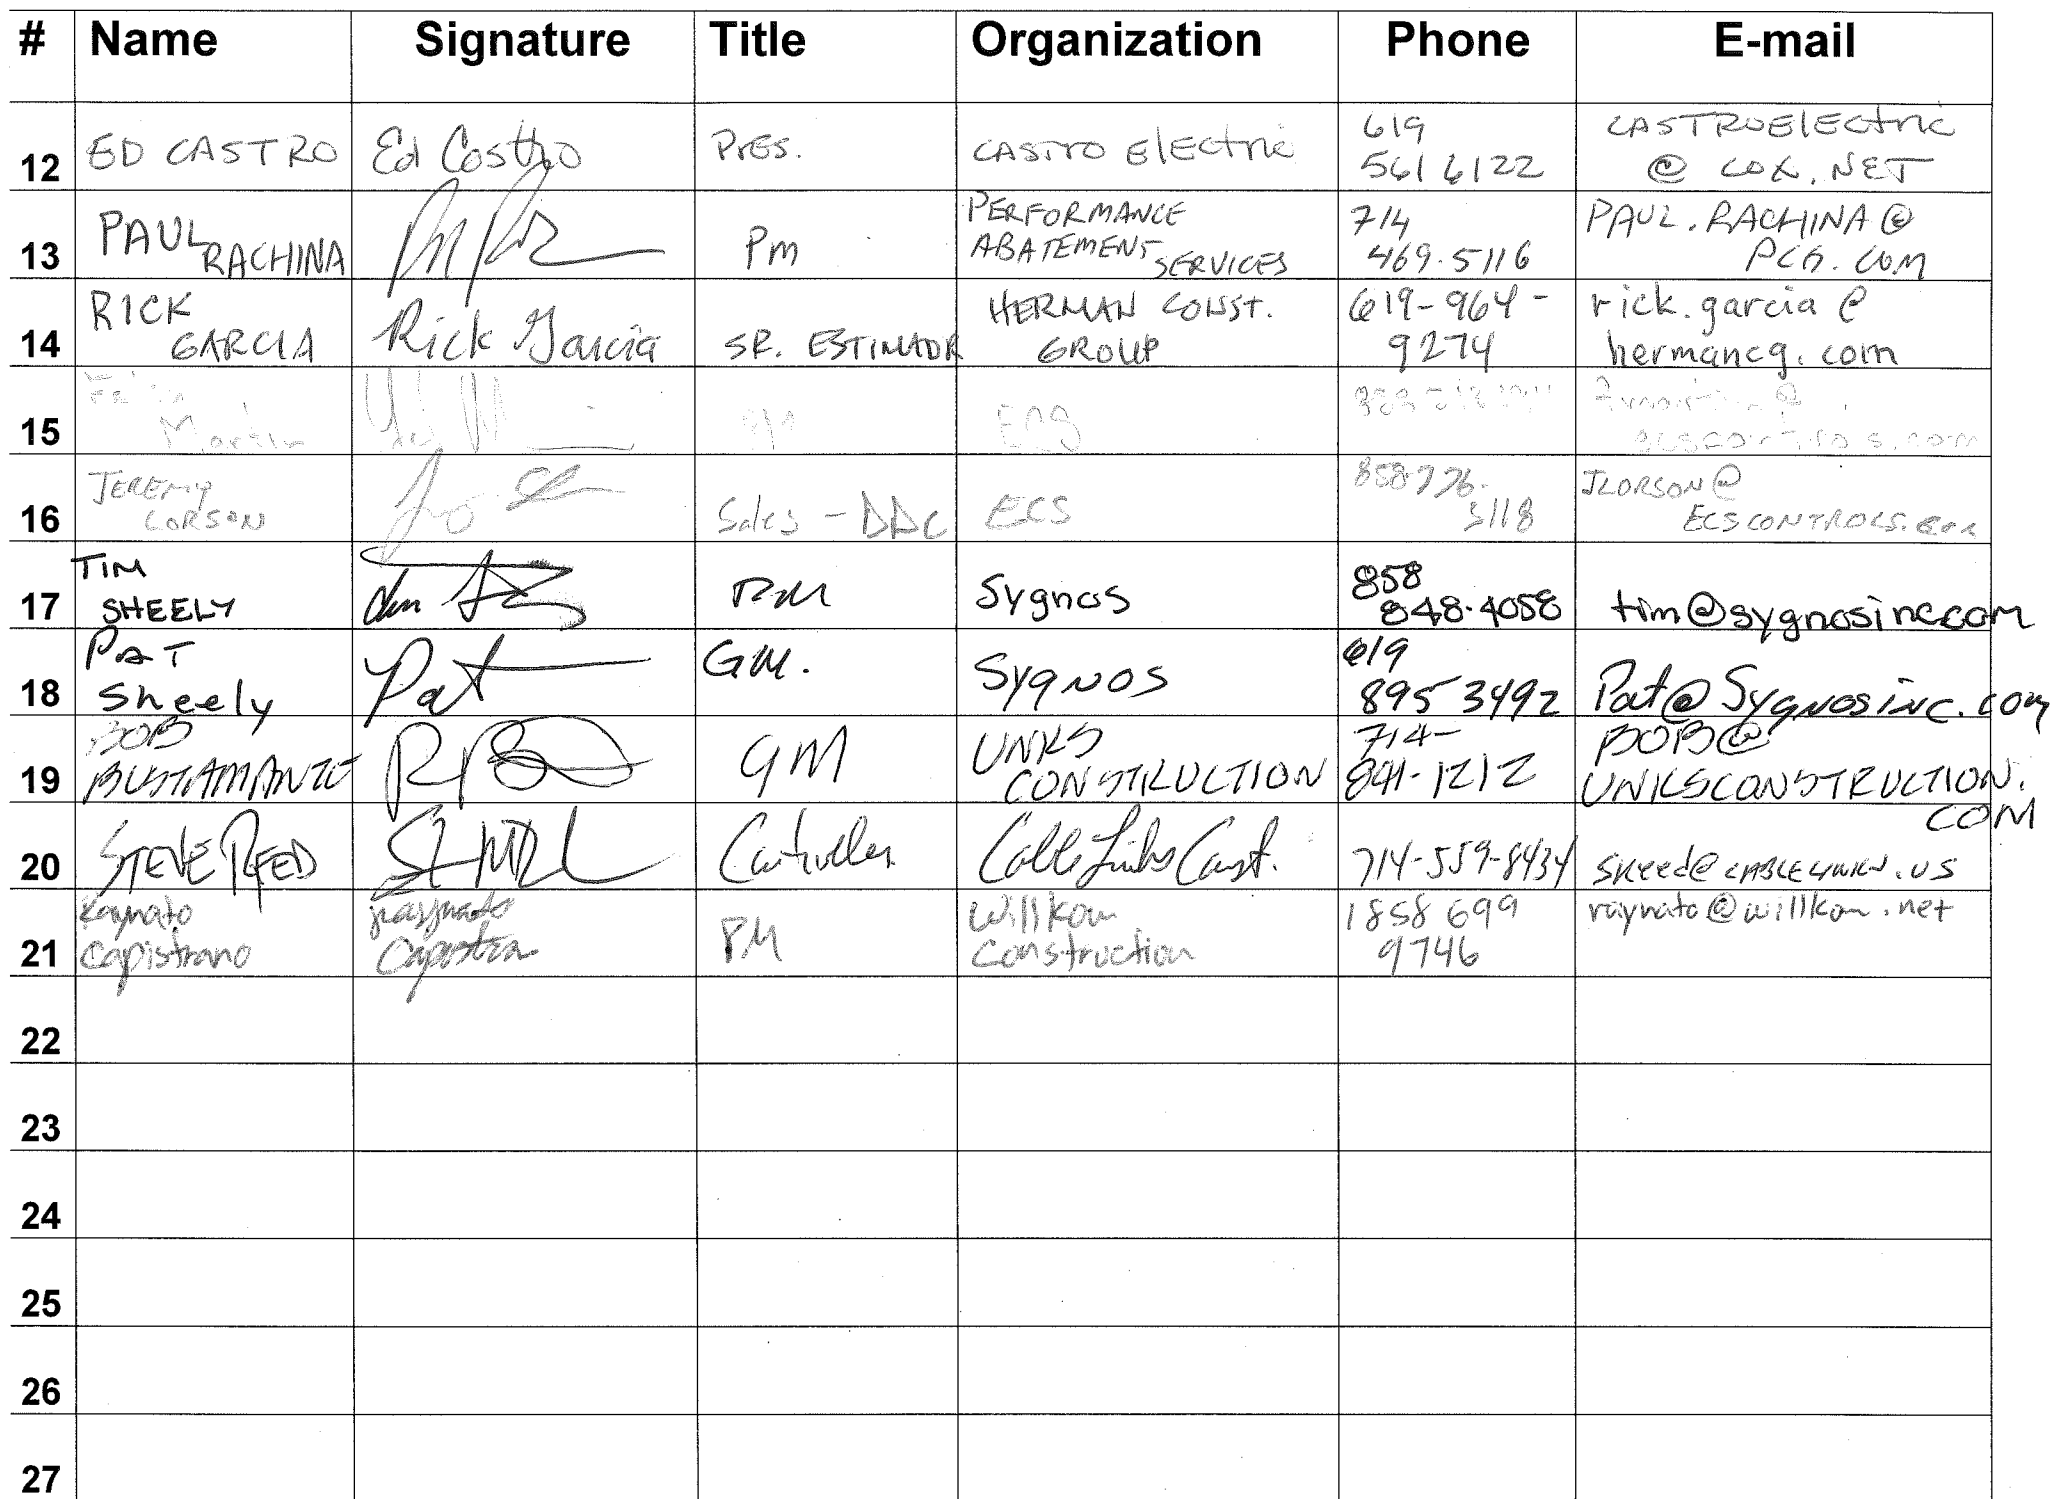 # Name Signature Title Organization Phone E-mail
12 ED CASTRO Ed Castro PrES. CASTRO ElEctric 619 561 6122 CASTROElEctric @ COX.NET
13 PAUL RACHINA PM PERFORMANCE ABATEMENT SERVICES 714 469.5116 PAUL.RACHINA@ PCG.COM
14 RICK GARCIA Rick Garcia SR. ESTIMATOR HERMAN CONST. GROUP 619-964-9274 rick.garcia@ hermancg.com
15 Martin
16 JEREMY CORSON Sales - DDC ECS 858.776. 5118 ECSCONTROLS.com
17 TIM SHEELY PM Sygnos 858 848.4058 tim@sygnosinc.com
18 PAT Sheely Pat GM. SYGNOS 619 895 3492 Pat@Sygnosinc.com
19 BOB BUSTAMANTE GM UNKS CONSTRUCTION 714- 841-1212 BOB@ UNKSCONSTRUCTION. COM
20 STEVE REED Controller Cable Links Const. 714-559-8434
21 Raynato Capistrano raynato PM Willkom Construction 1858 699 9746 raynato@willkom.net
22
23
24
25
26
27